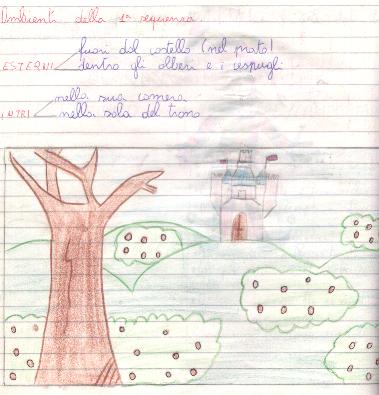 Ambienti della 1ª sequenza.
fuori dal castello (nel prato)
ESTERNI dentro gli alberi e i cespugli
nella sua camera
INTRI nella sala del trono